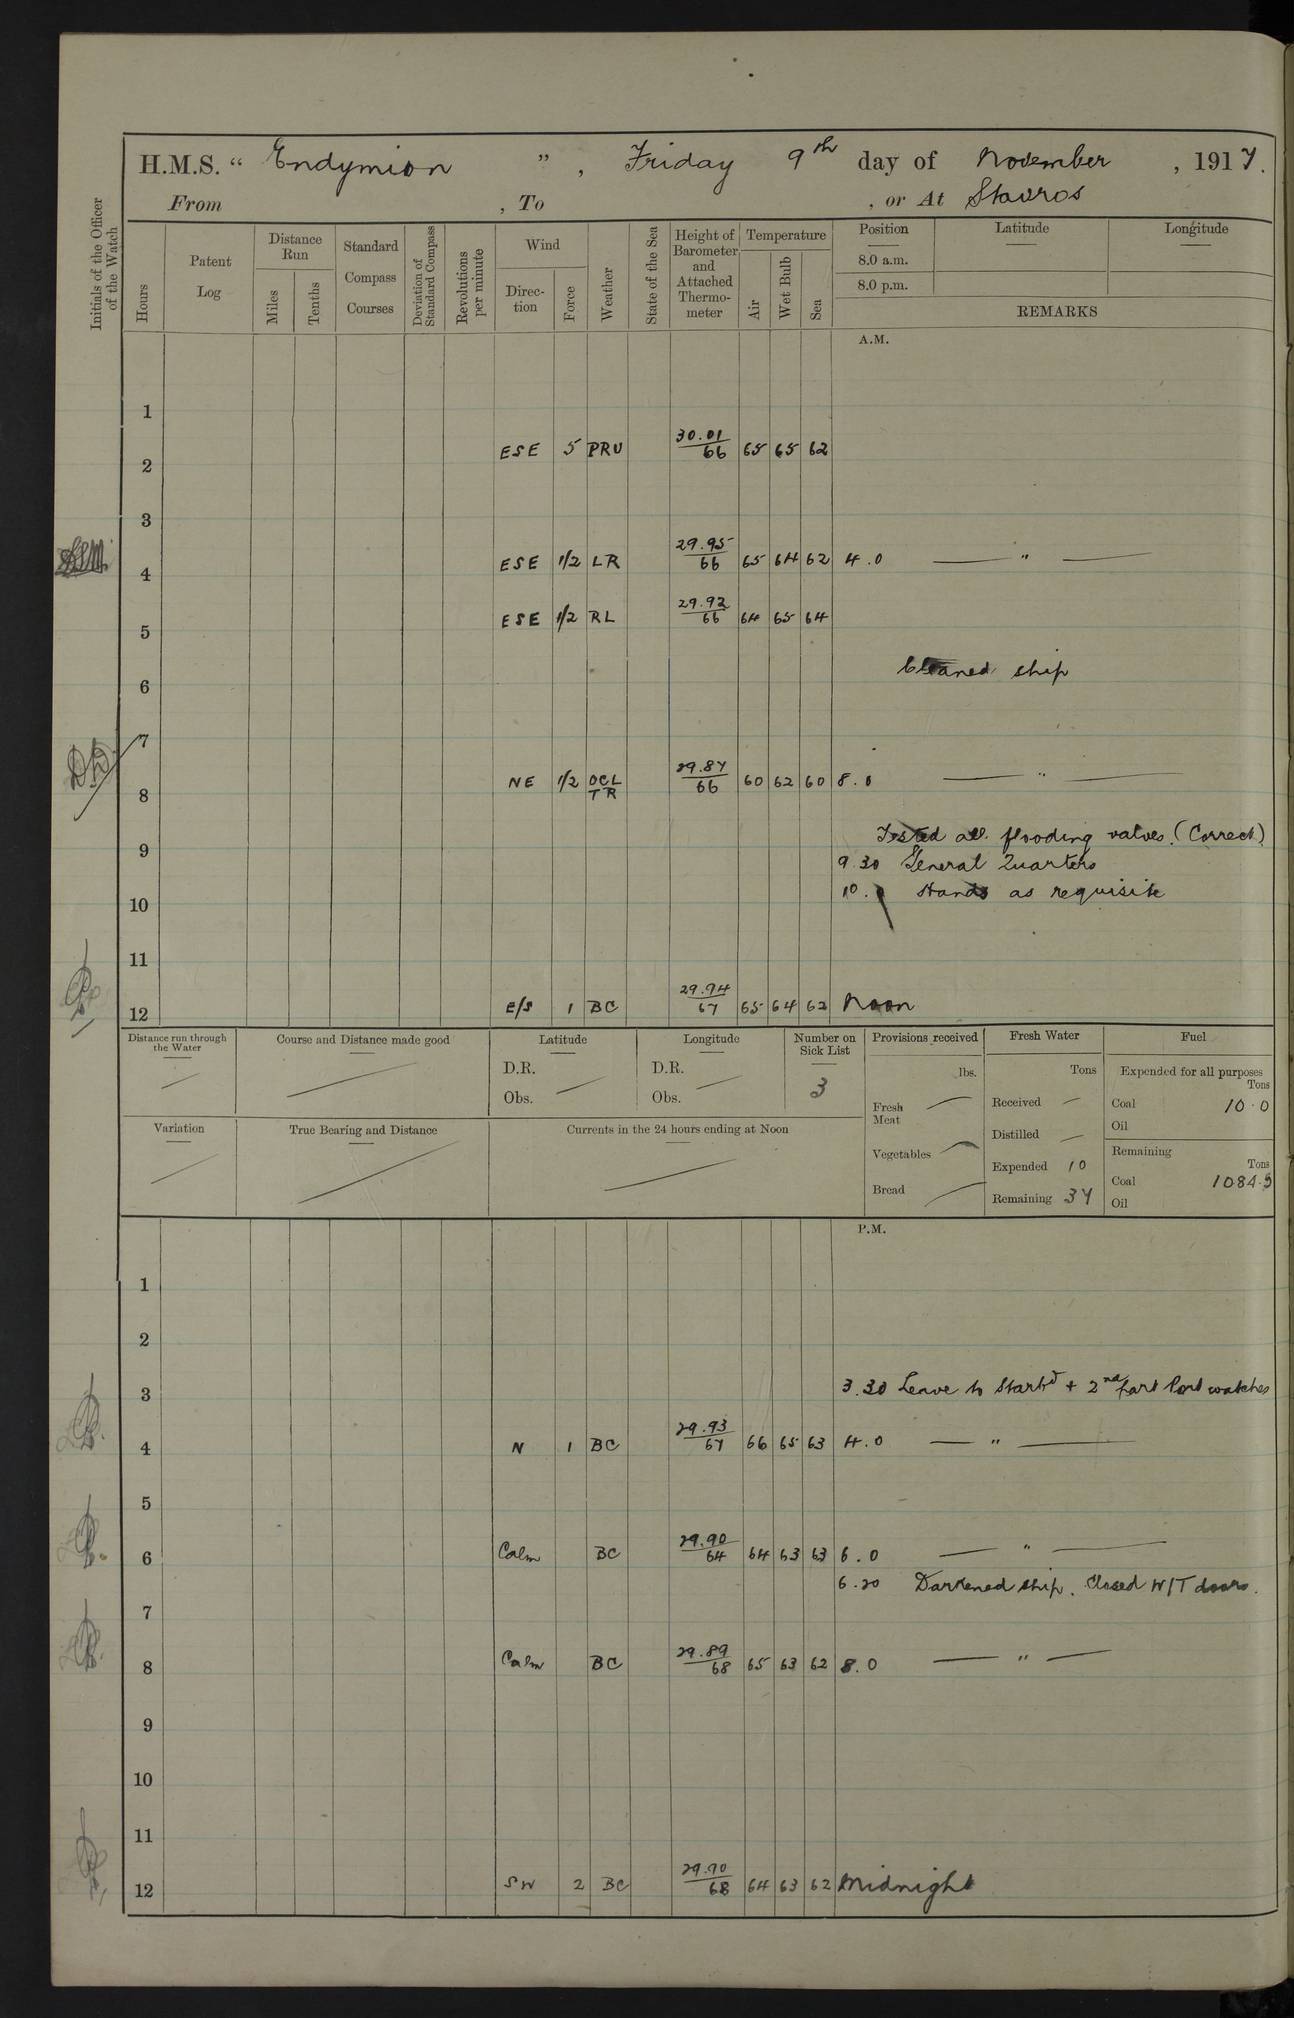 H.M.S. “ Endymion ”, Friday 9th day of November, 1917.
From , To , or At Stavros
Initials of the Officer of the Watch
Hours
Patent Log
Distance Run
Miles
Tenths
Standard Compass Courses
Deviation of Standard Compass
Revolutions per minute
Wind
Direc-tion
Force
Weather
State of the Sea
Height of Barometer and Attached Thermo-meter
Temperature
Air
Wet Bulb
Sea
Position
8.0 a.m.
8.0 p.m.
Latitude
Longitude
REMARKS
A.M.
1
ESE 5 PRU 30.01/66 65 65 62
2
3
ESE 1/2 LR 29.95/66 65 64 62 4.0 — " —
4
ESE 1/2 RL 29.92/66 64 65 64
5
Cleaned ship
6
7
NE 1/2 OCL TR 29.87/66 60 62 60 8.0 — " —
8
Tested all flooding valves. (Correct)
9
9.30 General Quarters
10.0 Hands as requisite
10
11
E/S 1 BC 29.94/67 65 64 62 Noon
12
Distance run through the Water
Course and Distance made good
Latitude
D.R.
Obs.
Longitude
D.R.
Obs.
Number on Sick List
3
Provisions received
lbs.
Fresh Meat
Vegetables
Bread
Fresh Water
Tons
Received
Distilled
Expended 10
Remaining 37
Fuel
Expended for all purposes
Tons
Coal 10.0
Oil
Remaining
Tons
Coal 1084.5
Oil
Variation
True Bearing and Distance
Currents in the 24 hours ending at Noon
P.M.
1
2
3
3.30 Leave to Starbd + 2nd part Port watches
4 N 1 BC 29.93/67 66 65 63 4.0 — " —
5
6 Calm BC 29.90/64 64 63 63 6.0 — " —
6.20 Darkened ship. Closed W/T doors.
7
8 Calm BC 29.89/68 65 63 62 8.0 — " —
9
10
11
12 SW 2 BC 29.90/68 64 63 62 Midnight